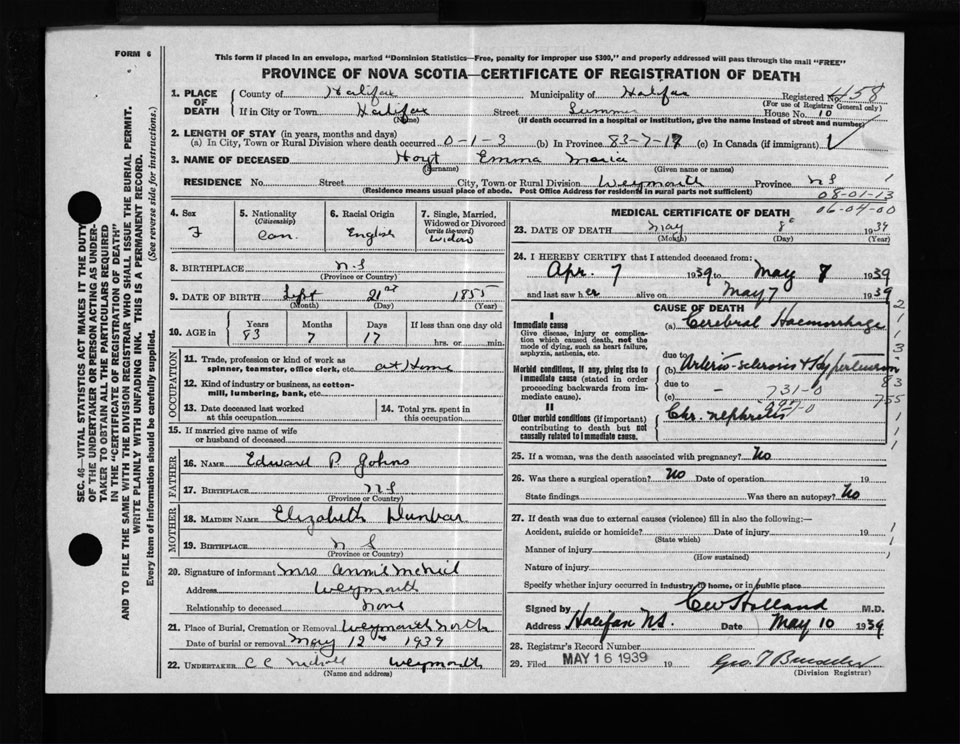 FORM 6
This form if placed in an envelope, marked "Dominion Statistics—Free, penalty for improper use $300," and properly addressed will pass through the mail "FREE"
PROVINCE OF NOVA SCOTIA—CERTIFICATE OF REGISTRATION OF DEATH
1. PLACE OF DEATH County of Halifax Municipality of Halifax Registered No. 458
(For use of Registrar General only)
If in City or Town Halifax Street Summer House No. 10
(Name) (If death occurred in a hospital or institution, give the name instead of street and number)
2. LENGTH OF STAY (in years, months and days)
(a) In City, Town or Rural Division where death occurred 0-1-3 (b) In Province 83-7-17 (c) In Canada (if immigrant)
3. NAME OF DECEASED Hoyt Emma Maria
(Surname) (Given name or names)
RESIDENCE No. Street City, Town or Rural Division Weymouth Province N S
(Residence means usual place of abode. Post Office Address for residents in rural parts not sufficient)
08-01-13
06-04-00
4. Sex F
5. Nationality (Citizenship) Can.
6. Racial Origin English
7. Single, Married, Widowed or Divorced (write the word) Widow
8. BIRTHPLACE N.S
(Province or Country)
9. DATE OF BIRTH Sept 21st 1855
(Month) (Day) (Year)
10. AGE in Years Months Days If less than one day old
83 7 17 hrs. or min.
OCCUPATION
11. Trade, profession or kind of work as spinner, teamster, office clerk, etc. at Home
12. Kind of industry or business, as cotton-mill, lumbering, bank, etc.
13. Date deceased last worked at this occupation
14. Total yrs. spent in this occupation
15. If married give name of wife or husband of deceased
FATHER
16. NAME Edward P. Johns
17. BIRTHPLACE N S
(Province or Country)
MOTHER
18. MAIDEN NAME Elizabeth Dunbar
19. BIRTHPLACE N S
(Province or Country)
20. Signature of informant Mrs Annie McNeil
Address Weymouth
Relationship to deceased none
21. Place of Burial, Cremation or Removal Weymouth North
Date of burial or removal May 12th 1939
22. UNDERTAKER C C Weymouth
(Name and address)
MEDICAL CERTIFICATE OF DEATH
23. DATE OF DEATH May 8 1939
(Month) (Day) (Year)
24. I HEREBY CERTIFY that I attended deceased from:
Apr. 7 1939 to May 8 1939
and last saw her alive on May 7 1939
CAUSE OF DEATH
I
Immediate cause
Give disease, injury or complication which caused death, not the mode of dying, such as heart failure, asphyxia, asthenia, etc.
(a) Cerebral Haemorrhage
due to
Morbid conditions, if any, giving rise to immediate cause (stated in order proceeding backwards from immediate cause).
(b) Arterio-sclerosis & Hypertension
due to
(c) 731-0
II
Other morbid conditions (if important) contributing to death but not causally related to immediate cause.
Chr. nephritis
25. If a woman, was the death associated with pregnancy? No
26. Was there a surgical operation? No Date of operation 19
State findings Was there an autopsy? No
27. If death was due to external causes (violence) fill in also the following:—
Accident, suicide or homicide? Date of injury 19
(State which)
Manner of injury
(How sustained)
Nature of injury
Specify whether injury occurred in industry, in home, or in public place
Signed by C W Holland M.D.
Address Halifax N.S. Date May 10 1939
28. Registrar's Record Number
29. Filed MAY 16 1939 19
(Division Registrar)
SEC. 46—VITAL STATISTICS ACT MAKES IT THE DUTY OF THE UNDERTAKER OR PERSON ACTING AS UNDERTAKER TO OBTAIN ALL THE PARTICULARS REQUIRED IN THE "CERTIFICATE OF REGISTRATION OF DEATH" AND TO FILE THE SAME WITH THE DIVISION REGISTRAR WHO SHALL ISSUE THE BURIAL PERMIT.
WRITE PLAINLY WITH UNFADING INK. THIS IS A PERMANENT RECORD.
Every item of information should be carefully supplied. (See reverse side for instructions.)